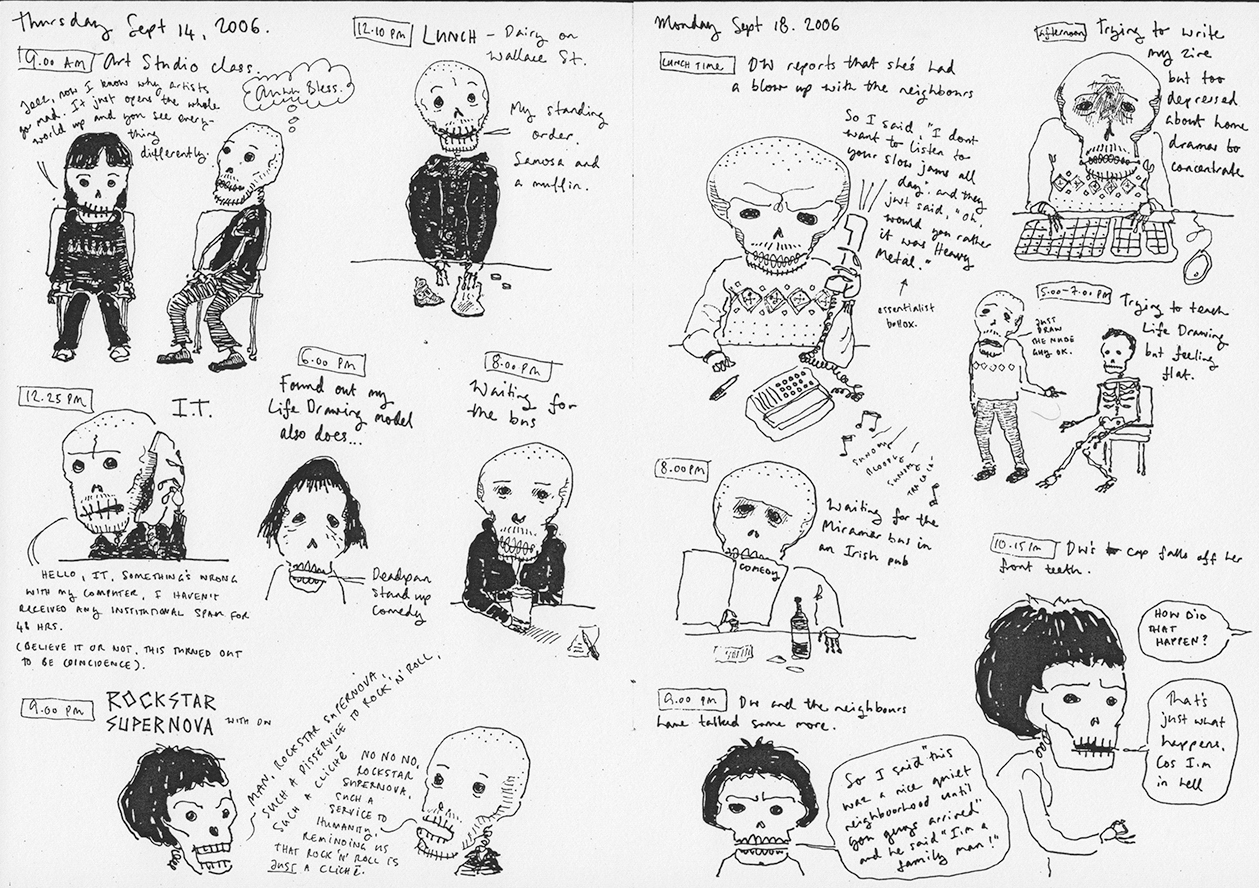 Thursday Sept 14, 2006.
9.00 AM Art Studio class.
Jeez, now I know why artists
go mad. It just opens the whole
world up and you see every-
thing
differently.
Awhh Bless.
12.10 PM LUNCH – Dairy on
Wallace St.
My standing
order.
Samosa and
a muffin.
12.25 PM I.T.
HELLO, IT, SOMETHING'S WRONG
WITH MY COMPUTER, I HAVEN'T
RECEIVED ANY INSTITUTIONAL SPAM FOR
48 HRS.
(BELIEVE IT OR NOT, THIS TURNED OUT
TO BE COINCIDENCE).
6.00 PM
Found out my
Life Drawing model
also does...
Deadpan
Stand up
Comedy
8.00 PM
Waiting for
the bus
9.00 PM ROCKSTAR
SUPERNOVA WITH DW
MAN, ROCKSTAR SUPERNOVA.
SUCH A DISSERVICE TO ROCK 'N' ROLL,
SUCH A CLICHÉ
NO NO NO,
ROCKSTAR
SUPERNOVA,
SUCH A
SERVICE TO
HUMANITY,
REMINDING US
THAT ROCK 'N' ROLL IS
JUST A CLICHÉ.
Monday Sept 18. 2006
LUNCH TIME DW reports that she's had
a blow up with the neighbours
So I said, "I dont
want to listen to
your slow jams all
day". and they
just said, "oh,
would you rather
it was Heavy
Metal."
essentialist
bollox.
Afternoon Trying to write
my zine
but too
depressed
about home
dramas to
concentrate
5.00-7.00 PM Trying to teach
Life Drawing
but feeling
flat.
JUST
DRAW
THE NUDE
GUY, OK.
8.00 PM
Waiting for the
Miramar bus in
an Irish pub
COMEDY
9.00 PM DW and the neighbours
have talked some more.
So I said "this
was a nice quiet
neighbourhood until
you guys arrived"
and he said "I'm a
family man!"
10.15 PM DW's cap falls off her
front teeth.
HOW DID
THAT
HAPPEN?
That's
just what
happens,
Cos I'm
in hell